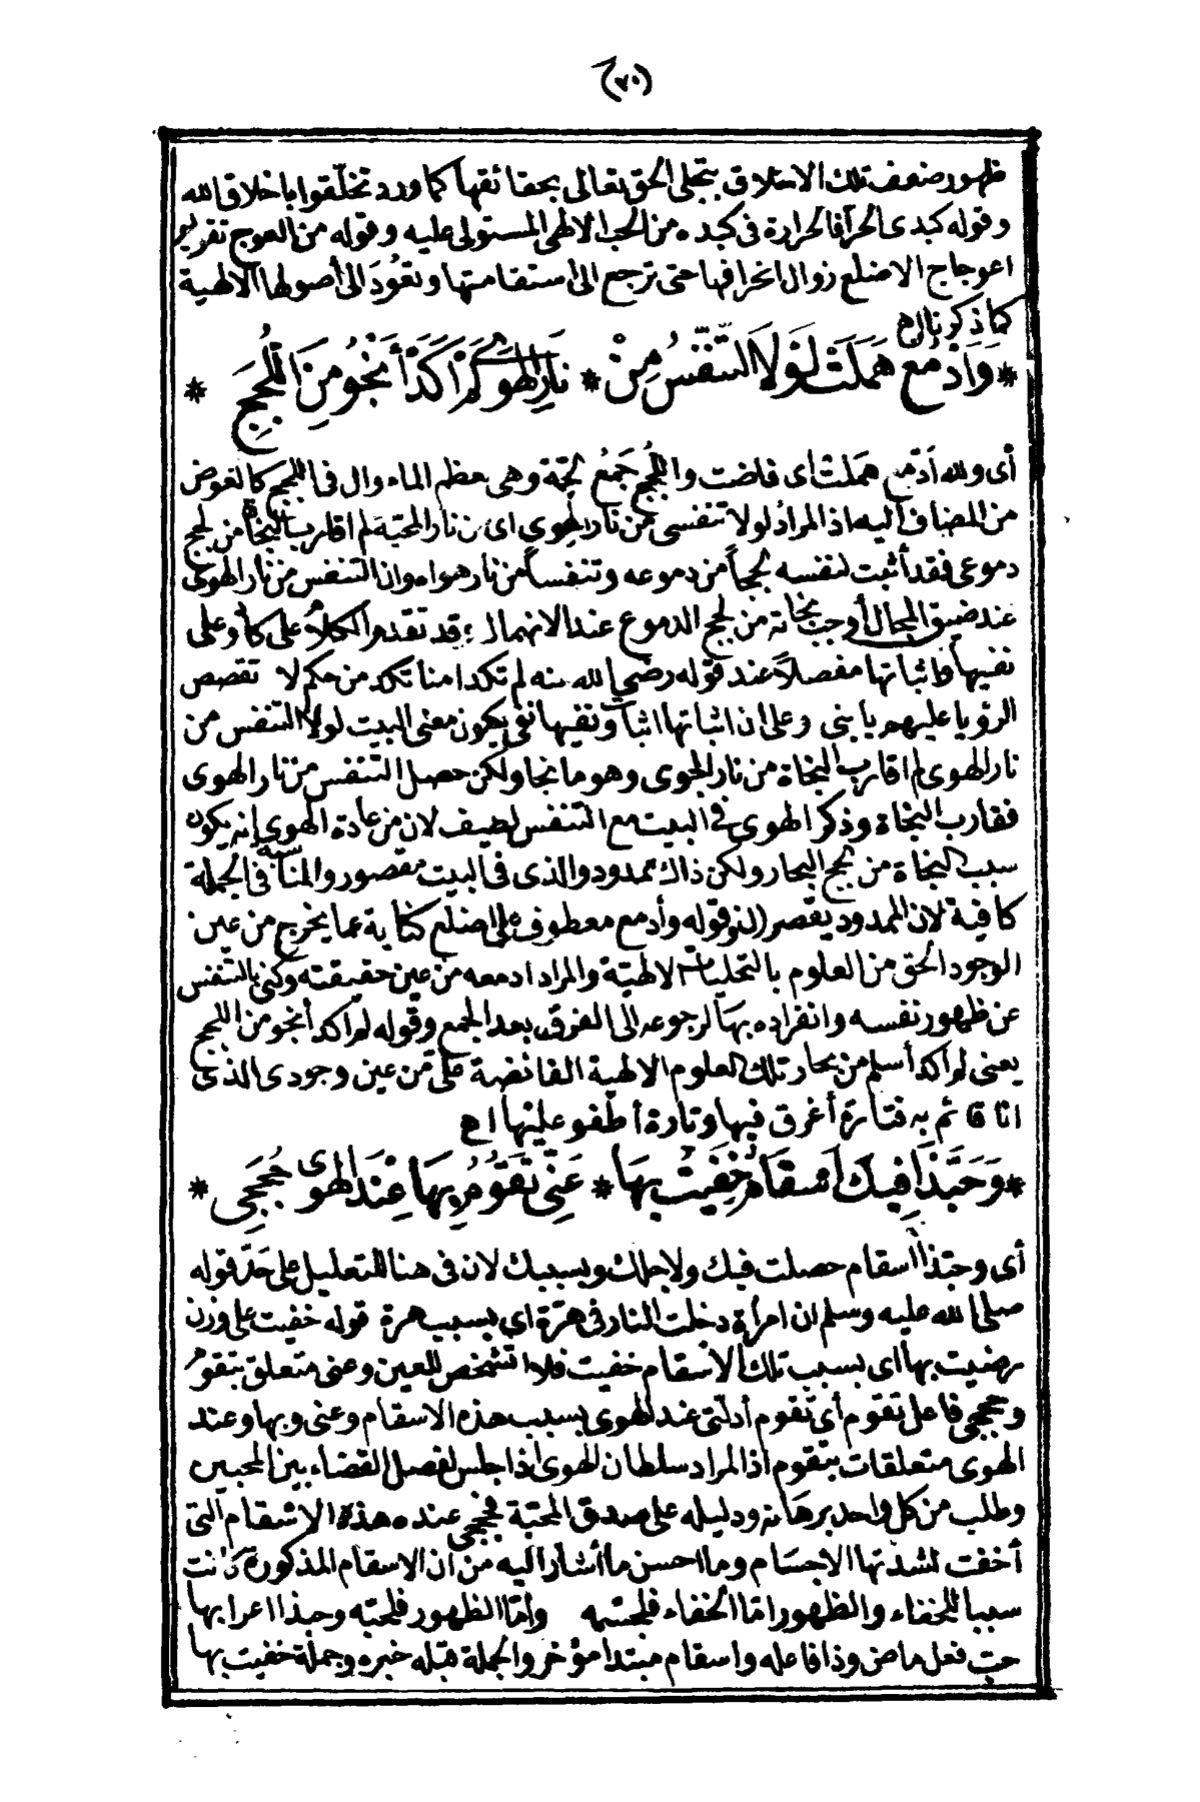 (٧٠)
ظهور ضعف تلك الاخلاق بتجلي الحق تعالى بحقائقها كما ورد تخلقوا باخلاق الله
وقوله كبدى الحرا فالحرارة فى كبده من الحب الالهى المستولى عليه وقوله من العوج تقرير
اعوجاج الاضلع زوال انحرافها حتى ترجع الى استقامتها وتعود الى أصولها الالهية
كما ذكرنا اه
* وَأَدْمُع هَمَلَتْ لَوْلَا التَّنَفُّسُ مِنْ * نَارِ الهَوى لَمْ أَكَدْ أَنْجُو مِنَ اللُّجَجِ *
أى ولله أدمع هملت اى فاضت واللجج جَمْعُ لجّة وهى معظم الماء وال فى اللجج كالعوض
من المضاف اليه اذ المراد لولا تنفسى من نار الهوى اى من نار المحبة لم اقارب النجاة من لجج
دموعى فقد أثبت لنفسه لججاً من دموعه وتنفساً من نار هواه وان التنفس من نار الهوى
عند ضيق المجال أوجب نجاته من لجج الدموع عند الانهمال وقد تقدم الكلام على كاد وعلى
نفيها واثباتها مفصلاً عند قوله رضي الله عنه لم تكد امنا تكد من حكم لا تقصص
الرؤيا عليهم يا بنى وعلى ان اثباتها اثبات ونفيها نفى يكون معنى البيت لولا التنفس من
نار الهوى لم اقارب النجاة من نار الجوى وهو ما نجا ولكن حصل التنفس من نار الهوى
فقارب النجاة وذكر الهوى فى البيت مع التنفس لطيف لان من عادة الهوى انه يكون
سبب النجاة من لجج البحار ولكن ذاك ممدود والذى فى البيت مقصور والمناسبة فى الجملة
كافية لان الممدود يقصر (لنو قوله وأدمع معطوف على اضلع كناية عما يخرج من عين
الوجود الحق من العلوم بالتجليات الالهيّة والمراد ادمعه من عين حقيقته وكنى بالتنفس
عن ظهور نفسه وانفراده بها لرجوعه الى الفرق بعد الجمع وقوله لم أكد أنجو من اللجج
يعنى لم أكد أسلم من بحار تلك العلوم الالهية الفائضة علىّ من عين وجودى الذى
انا قائم به فتارة أغرق فيها وتارة أطفو عليها اه
* وَحَبَّذَا فِيكَ اَسْقَامٌ خَفِيَتْ بِهَا * عَنّي تَقُومُ بِهَا عِنْدَ الهَوى حُجَجِى *
أى وحبّذا أسقام حصلت فيك ولاجلك وبسببك لان فى هنا للتعليل على حَدّ قوله
صلى الله عليه وسلم ان امرأة دخلت النار فى هرّة اى بسبب هرة قوله خفيت على وزن
رضيت بها اى بسبب تلك الاسقام خفيت فلا اتشخص للعين وعنى متعلق بتقومُ
وحججى فاعل تقوم أى تقوم أدلّتى عند الهوى بسبب هذه الاسقام وعنى وبها وعند
الهوى متعلقات بتقوم اذ المراد سلطان الهوى اذا جلس لفصل القضاء بين المحبين
وطلب من كل واحد برهانه ودليله على صدق المحبّة فحججى عنده هذه الاسقام التى
أخفت لشدتها الاجسَام وما احسن ما أشار اليه من ان الاسقام المذكورة كانت
سببا للخفاء والظهور امّا الخفاء فلجسمه وامّا الظهور فلحبّه وحبذا اعرابها
حب فعل ماض وذا فاعله واسقام مبتدا مؤخر والجملة قبله خبره وجملة خفيت بها